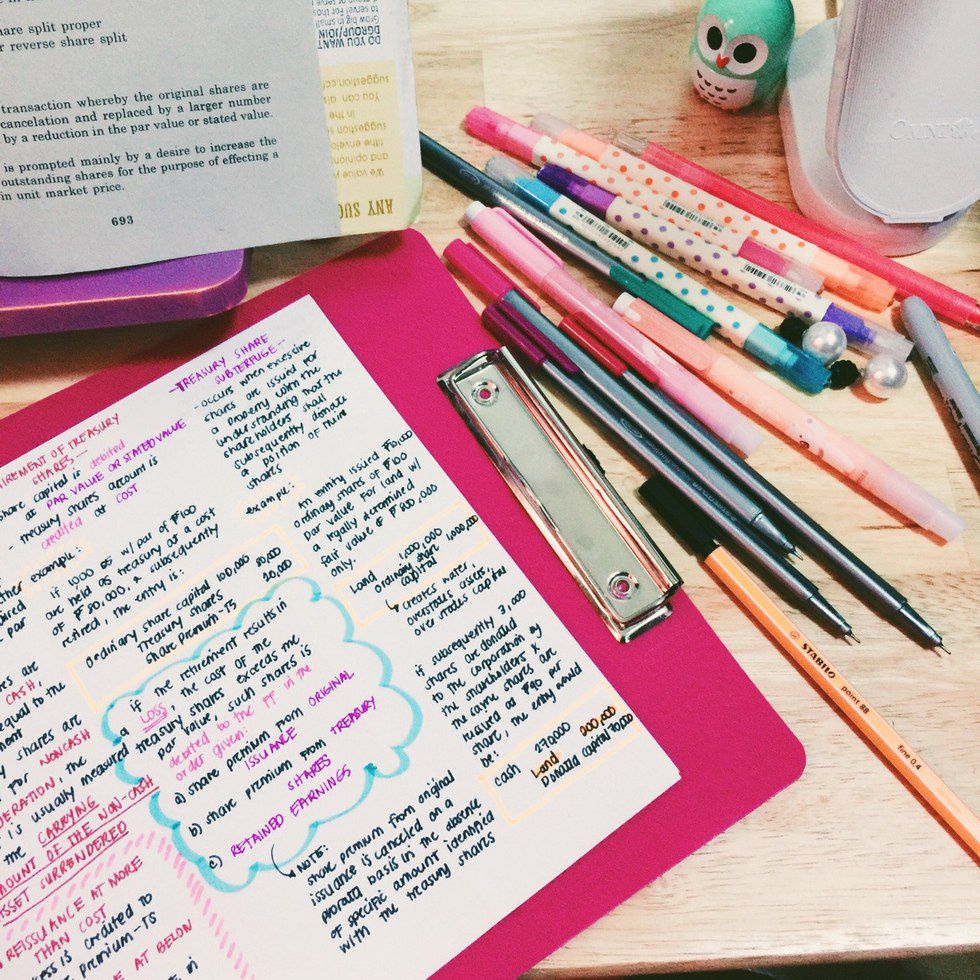 hare split proper
r reverse share split
transaction whereby the original shares are
cancelation and replaced by a larger number
by a reduction in the par value or stated value.
is prompted mainly by a desire to increase the
outstanding shares for the purpose of effecting a
in unit market price.
693
DO YOU WANT
DGROUP/JOIN
Grow big in small
suggestion
You can
in the
suggestion
the envelop
and opinion
We value
ANY SUG
IREMENT OF TREASURY
SHARES—
share capital is debited
at PAR VALUE OR STATED VALUE
- treasury shares account is
credited at COST
her example:
if 1000 os w/ par of ₱100
are held as treasury at a cost
of ₱80,000, & subsequently
retired, the entry is:
ordinary share capital 100,000
Treasury shares 80,000
share Premium-TS 20,000
if the retirement results in
a LOSS, the cost of the
treasury shares exceeds the
par value, such shares is
debited to the FF in the
order given:
a) share premium from ORIGINAL
ISSUANCE
b) share premium from TREASURY
SHARES
c) RETAINED EARNINGS
NOTE:
share premium from original
issuance is canceled on a
prorata basis in the absence
of specific amount identified
with the treasury shares
es are
CASH,
equal to the
y shares are
for NONCASH
DERATION, the
is usually measured
the CARRYING
MOUNT OF THE NON-CASH
ASSET SURRENDERED
REISSUANCE AT MORE
THAN COST
cess is credited to
e premium-TS
E AT BELOW
-TREASURY SHARE
SUBTERFUGE-
- occurs when excessive
shares are issued for
a property with the
understanding that the
shareholders shall
subsequently donate
a portion of their
shares
example:
An entity issued ₱10,000
ordinary shares of ₱100
par value for land w/
a legally determined
fair value of ₱800,000
only.
Land 1,000,000
ordinary share 1,000,000
capital
creates water,
overstates assets,
over states capital
if subsequently 3,000
shares are donated
to the corporation by
the shareholders &
the same shares are
reissued at ₱90 per
share, the entry would
be:
cash 270,000
Land 200,000
Donated capital 70,000
STABILO
point 88
fine 0.4